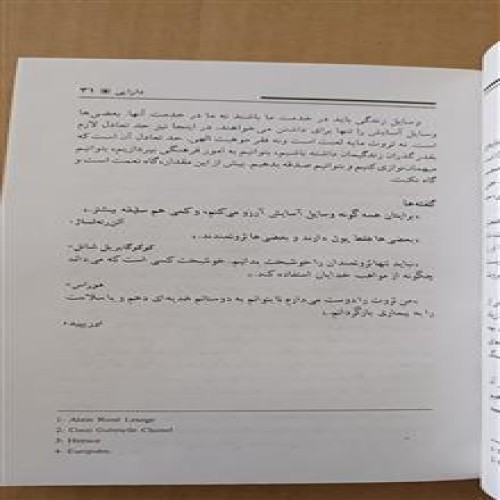 دارایی ※ ۳۱
وسایل زندگی باید در خدمت ما باشند نه ما در خدمت آنها. بعضی‌ها
وسایل آسایش را تنها برای داشتن می‌خواهند. در اینجا نیز حد تعادل لازم
است. نه ثروت مایه لعنت است و نه فقر موهبت الهی. حد تعادل آن است که
بقدر گذران زندگیمان داشته باشیم، بتوانیم به امور فرهنگی بپردازیم، بتوانیم
میهمان‌نوازی کنیم و بتوانیم صدقه بدهیم. بیش از این مقدار، گاه نعمت است و
گاه نکبت.
گفته‌ها
«برایتان همه گونه وسایل آسایش آرزو می‌کنم، و کمی هم سلیقه بیشتر.»
آلن رنه‌لساژ۱
«بعضی‌ها فقط پول دارند و بعضی‌ها ثروتمندند.»
کوکوگابریل شانل۲
«نباید تنها ثروتمندان را خوشبخت بدانیم. خوشبخت کسی است که می‌داند
چگونه از مواهب خدایان استفاده کند.»
هوراس۳
«من ثروت را دوست می‌دارم تا بتوانم به دوستانم هدیه‌ای دهم و یا سلامت
را به بیماری بازگردانم.»
اورپید۴
1- Alain René Lesage
2- Coco Gabrielle Chanel
3- Horace
4- Euripides